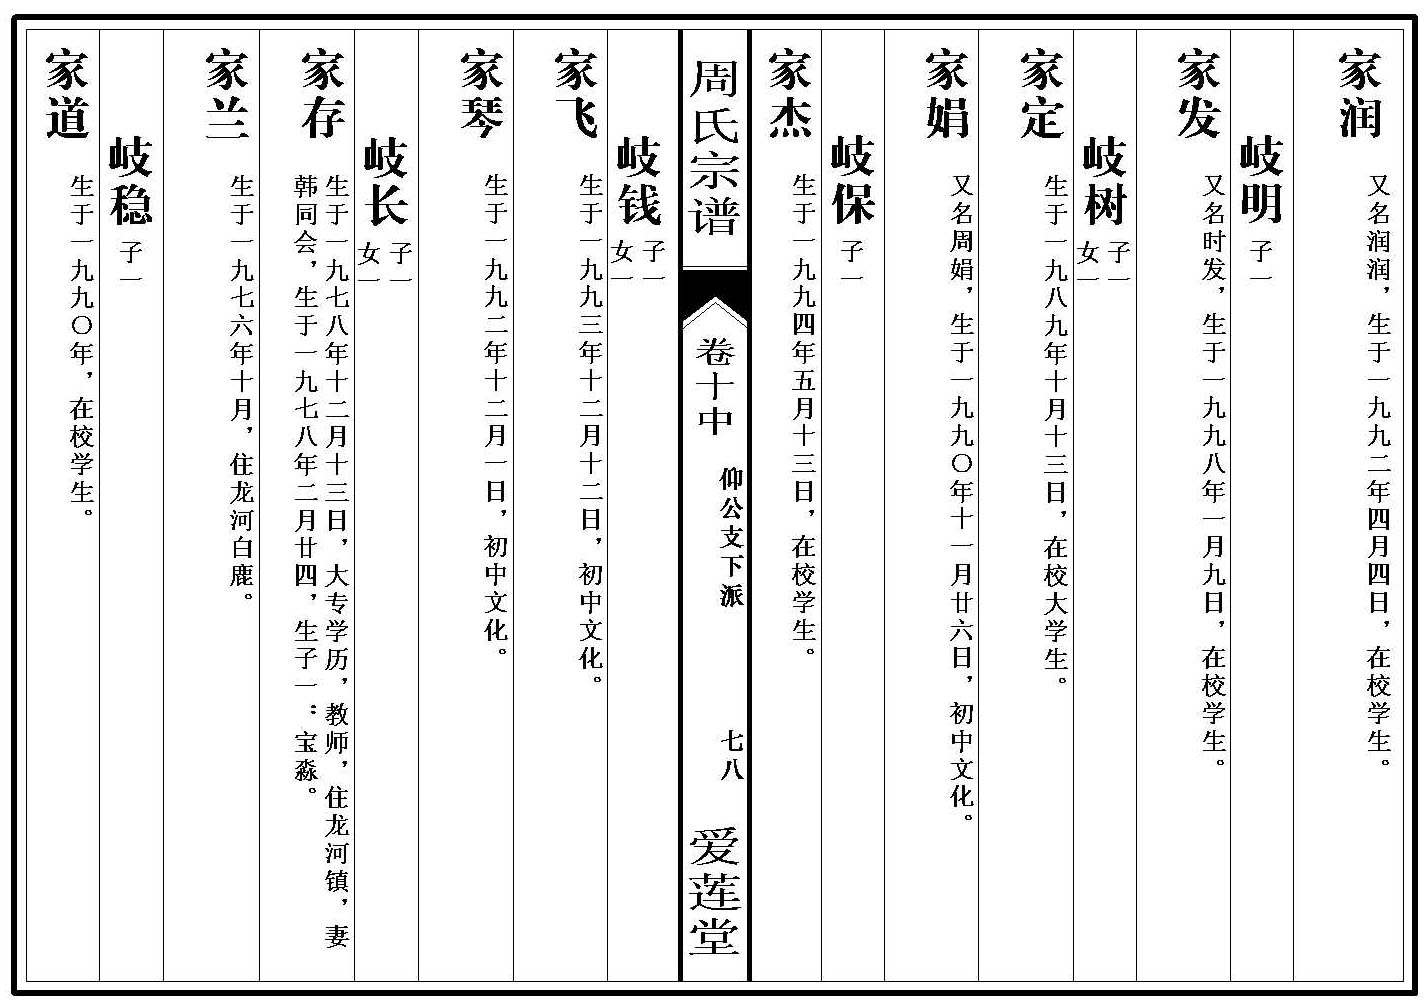 家润
又名润润，生于一九九二年四月四日，在校学生。
岐明 子一
家发
又名时发，生于一九九八年一月九日，在校学生。
岐树 子一
女一
家定
生于一九八九年十月十三日，在校大学生。
家娟
又名周娟，生于一九九〇年十一月廿六日，初中文化。
岐保 子一
家杰
生于一九九四年五月十三日，在校学生。
周氏宗谱
卷十中
仰公支下派
七八
爱莲堂
岐钱 子一
女一
家飞
生于一九九三年十二月十二日，初中文化。
家琴
生于一九九二年十二月一日，初中文化。
岐长 子一
女一
家存
生于一九七八年十二月十三日，大专学历，教师，住龙河镇，妻
韩同会，生于一九七八年二月廿四，生子一：宝淼。
家兰
生于一九七六年十月，住龙河白鹿。
岐稳 子一
家道
生于一九九〇年，在校学生。